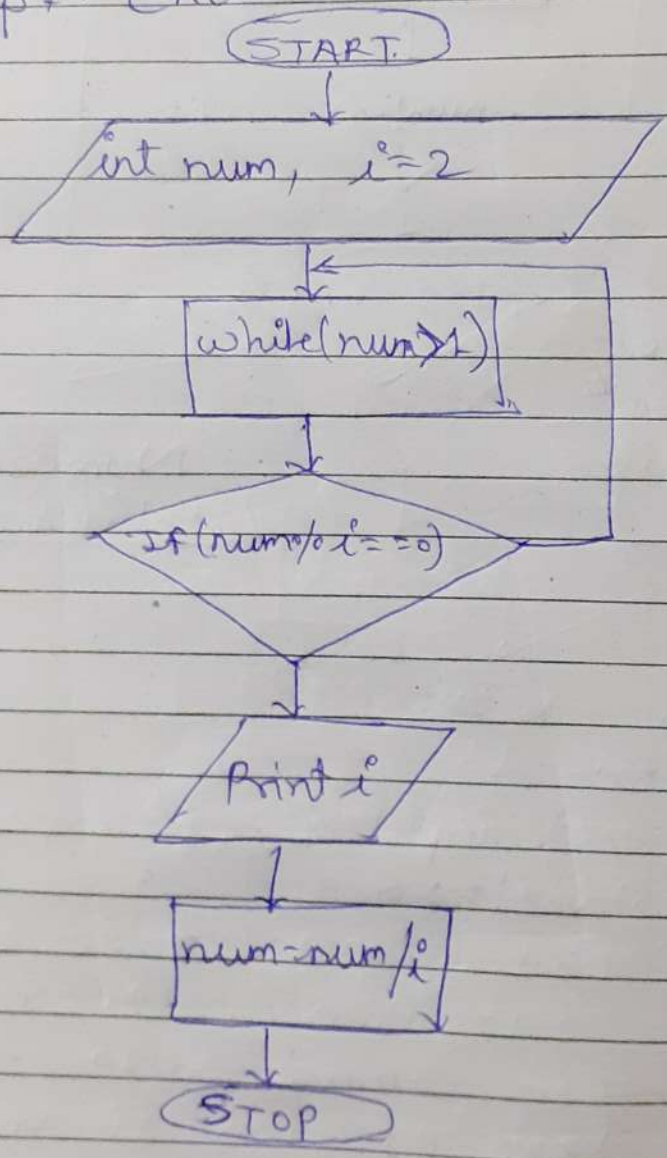 START.
int num, i=2
while(num>1)
If(num%i==0)
Print i
num=num/i
STOP